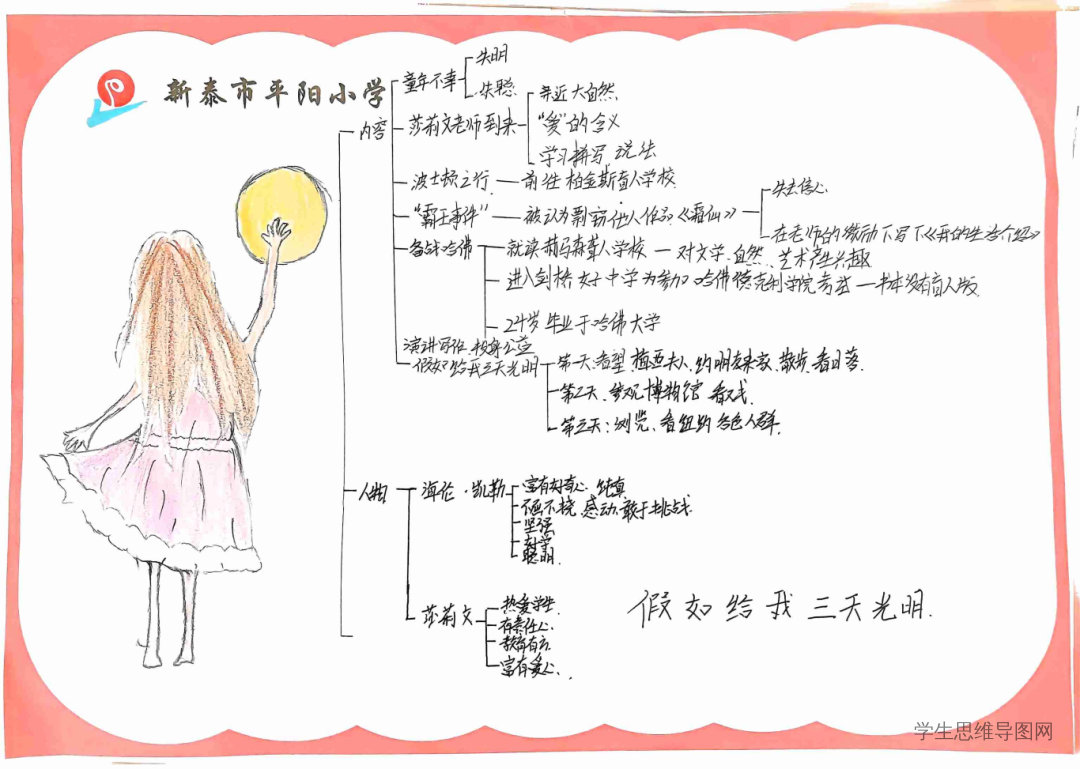 新泰市平阳小学
内容
童年不幸
失明
失聪
莎莉文老师到来
亲近大自然
"爱"的含义
学习拼写、说话
波士顿之行
前往柏金斯盲人学校
"霜王事件"
被认为剽窃他人作品《霜仙》
失去信心
在老师的激励下写下《我的生活介绍》
备战哈佛
就读莱马森聋人学校
对文学、自然、艺术产生兴趣
进入剑桥女子中学为参加哈佛德克利学院考试
书本没有盲人版
24岁毕业于哈佛大学
演讲写作、投身公益
假如给我三天光明
第一天:看望梅西夫人、约朋友来家、散步、看日落
第二天、参观博物馆 看戏
第三天:浏览、看纽约各色人群.
人物
海伦·凯勒
富有好奇心、纯真
不屈不挠、感动、敢于挑战
坚强
聪明
莎莉文
热爱学生
有责任心
教育有方
富有爱心.
假如给我三天光明.
学生思维导图网